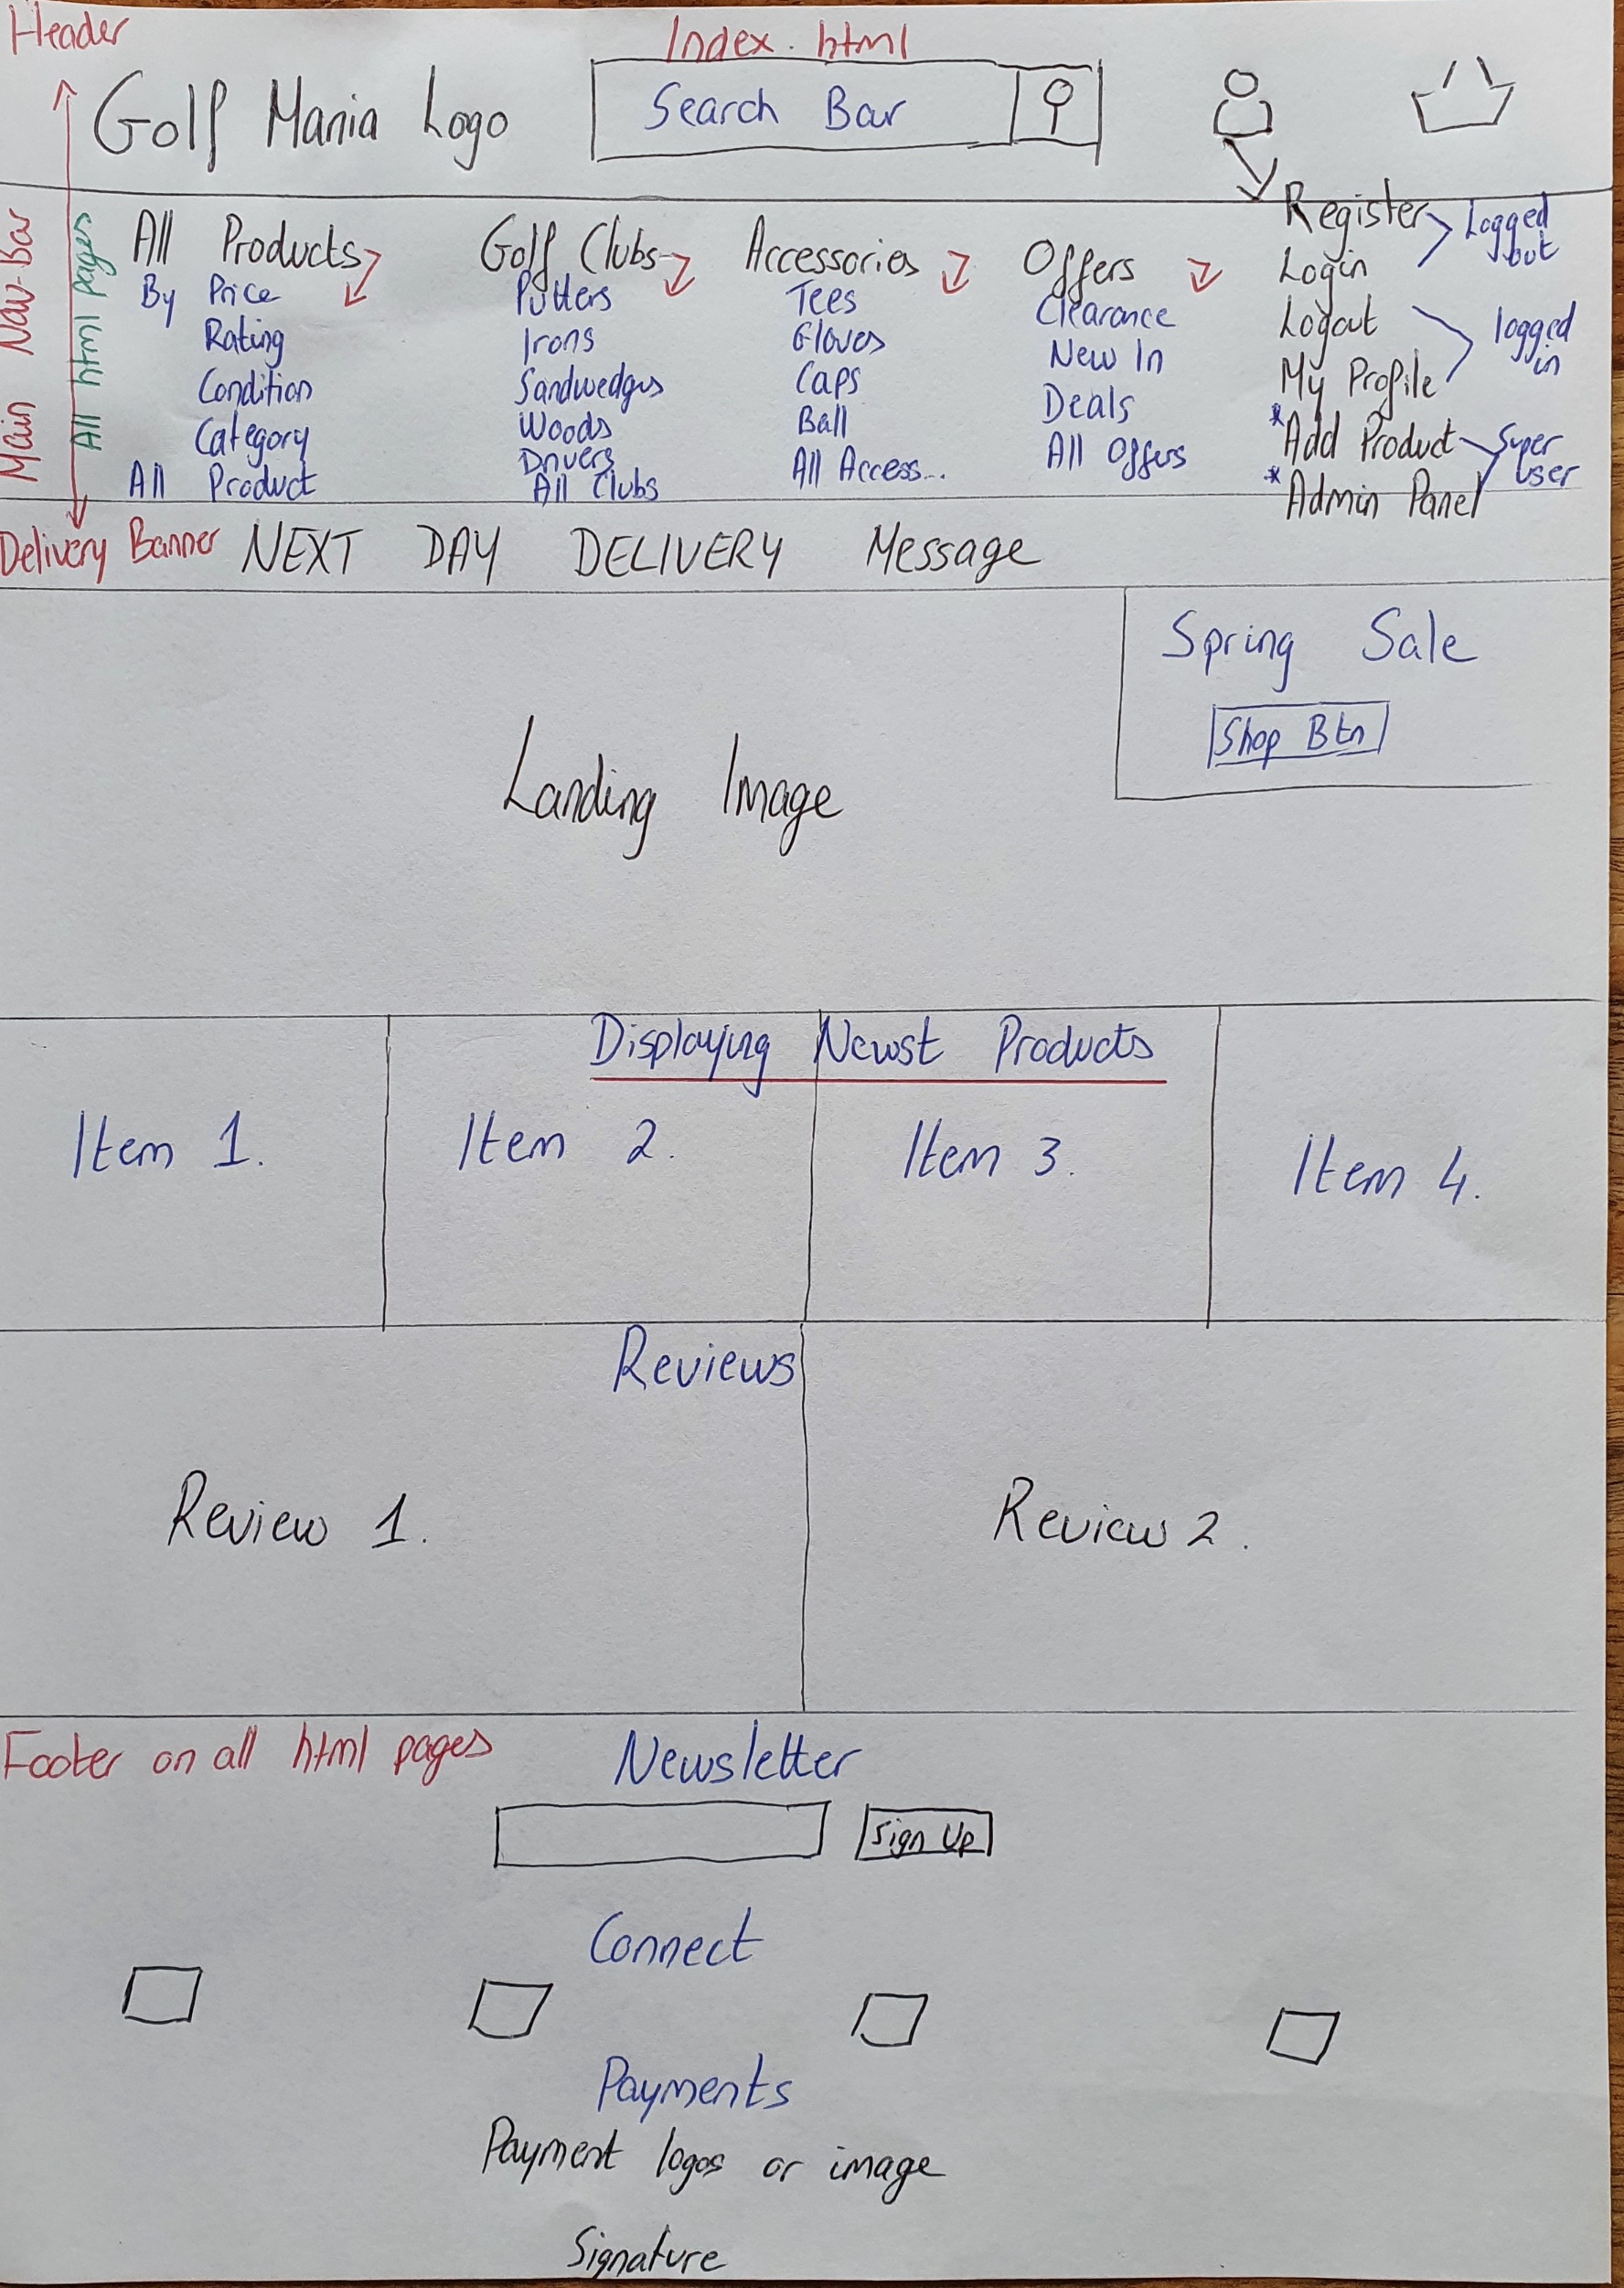 Header
Index.html
Golf Mania Logo
Search Bar
Main Nav-Bar
All html pages
All Products
By Price
Rating
Condition
Category
All Product
Golf Clubs
Putters
Irons
Sandwedges
Woods
Drivers
All Clubs
Accessories
Tees
Gloves
Caps
Ball
All Access...
Offers
Clearance
New In
Deals
All Offers
Register
Login
Logged out
Logout
My Profile
logged in
* Add Product
* Admin Panel
Super user
Delivery Banner NEXT DAY DELIVERY Message
Spring Sale
Shop Btn
Landing Image
Displaying Newst Products
Item 1.
Item 2.
Item 3.
Item 4.
Reviews
Review 1.
Review 2.
Footer on all html pages
Newsletter
Sign Up
Connect
Payments
Payment logos or image
Signature